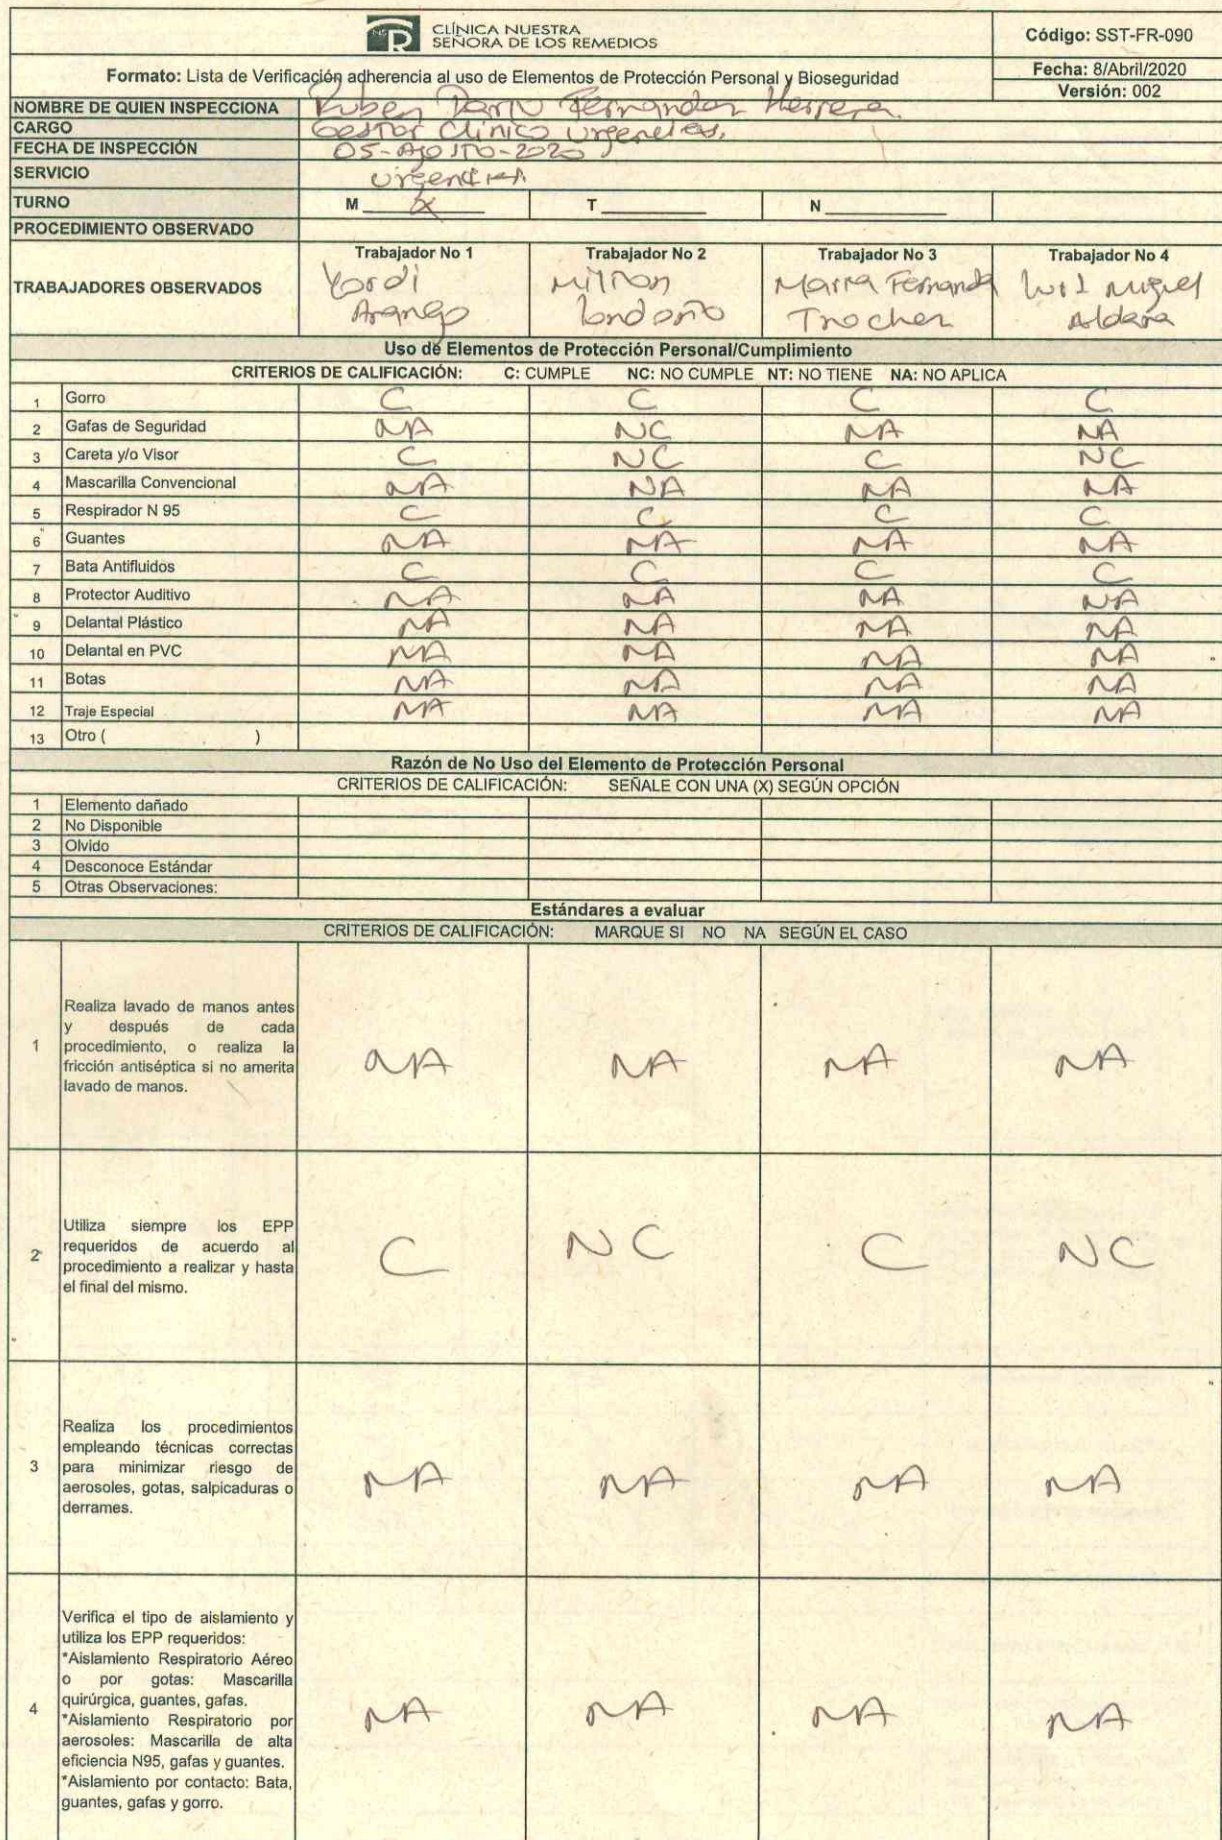 CLÍNICA NUESTRA
SEÑORA DE LOS REMEDIOS
Código: SST-FR-090
Formato: Lista de Verificación adherencia al uso de Elementos de Protección Personal y Bioseguridad
Fecha: 8/Abril/2020
Versión: 002
NOMBRE DE QUIEN INSPECCIONA Ruben Dario Fernandez Herrera
CARGO Gestor Clinico Urgencias.
FECHA DE INSPECCIÓN 05-Agosto-2020
SERVICIO Urgencias
TURNO M X T N
PROCEDIMIENTO OBSERVADO
TRABAJADORES OBSERVADOS
Trabajador No 1 Trabajador No 2 Trabajador No 3 Trabajador No 4
Yordi Milton Maria Fernanda Luis Miguel
Arango Londoño Trochez Aldana
Uso de Elementos de Protección Personal/Cumplimiento
CRITERIOS DE CALIFICACIÓN: C: CUMPLE NC: NO CUMPLE NT: NO TIENE NA: NO APLICA
1 Gorro C C C C
2 Gafas de Seguridad NA NC NA NA
3 Careta y/o Visor C NC C NC
4 Mascarilla Convencional NA NA NA NA
5 Respirador N 95 C C C C
6 Guantes NA NA NA NA
7 Bata Antifluidos C C C C
8 Protector Auditivo NA NA NA NA
9 Delantal Plástico NA NA NA NA
10 Delantal en PVC NA NA NA NA
11 Botas NA NA NA NA
12 Traje Especial NA NA NA NA
13 Otro ( )
Razón de No Uso del Elemento de Protección Personal
CRITERIOS DE CALIFICACIÓN: SEÑALE CON UNA (X) SEGÚN OPCIÓN
1 Elemento dañado
2 No Disponible
3 Olvido
4 Desconoce Estándar
5 Otras Observaciones:
Estándares a evaluar
CRITERIOS DE CALIFICACIÓN: MARQUE SI NO NA SEGÚN EL CASO
Realiza lavado de manos antes
y después de cada
1 procedimiento, o realiza la
fricción antiséptica si no amerita
lavado de manos.
NA NA NA NA
Utiliza siempre los EPP
2 requeridos de acuerdo al
procedimiento a realizar y hasta
el final del mismo.
C NC C NC
Realiza los procedimientos
empleando técnicas correctas
3 para minimizar riesgo de
aerosoles, gotas, salpicaduras o
derrames.
NA NA NA NA
Verifica el tipo de aislamiento y
utiliza los EPP requeridos:
*Aislamiento Respiratorio Aéreo
o por gotas: Mascarilla
4 quirúrgica, guantes, gafas.
*Aislamiento Respiratorio por
aerosoles: Mascarilla de alta
eficiencia N95, gafas y guantes.
*Aislamiento por contacto: Bata,
guantes, gafas y gorro.
NA NA NA NA